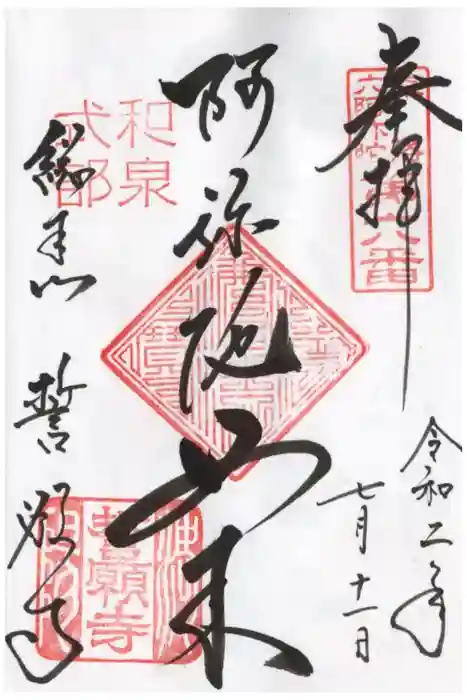 奉拝
六阿弥陀
第六番
令和二年
七月十一日
阿弥陀如来
和泉
式部
総本山 誓願寺
誓願寺